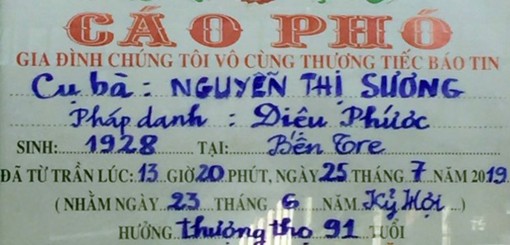 CÁO PHÓ
GIA ĐÌNH CHÚNG TÔI VÔ CÙNG THƯƠNG TIẾC BÁO TIN
Cụ bà : NGUYỄN THỊ SƯƠNG
Pháp danh : Diệu Phước
SINH: 1928 TẠI: Bến Tre
ĐÃ TỪ TRẦN LÚC: 13 GIỜ 20 PHÚT, NGÀY 25 THÁNG 7 NĂM 2019
( NHẰM NGÀY 23 THÁNG 6 NĂM Kỷ Hợi )
HƯỞNG thượng thọ 91 TUỔI